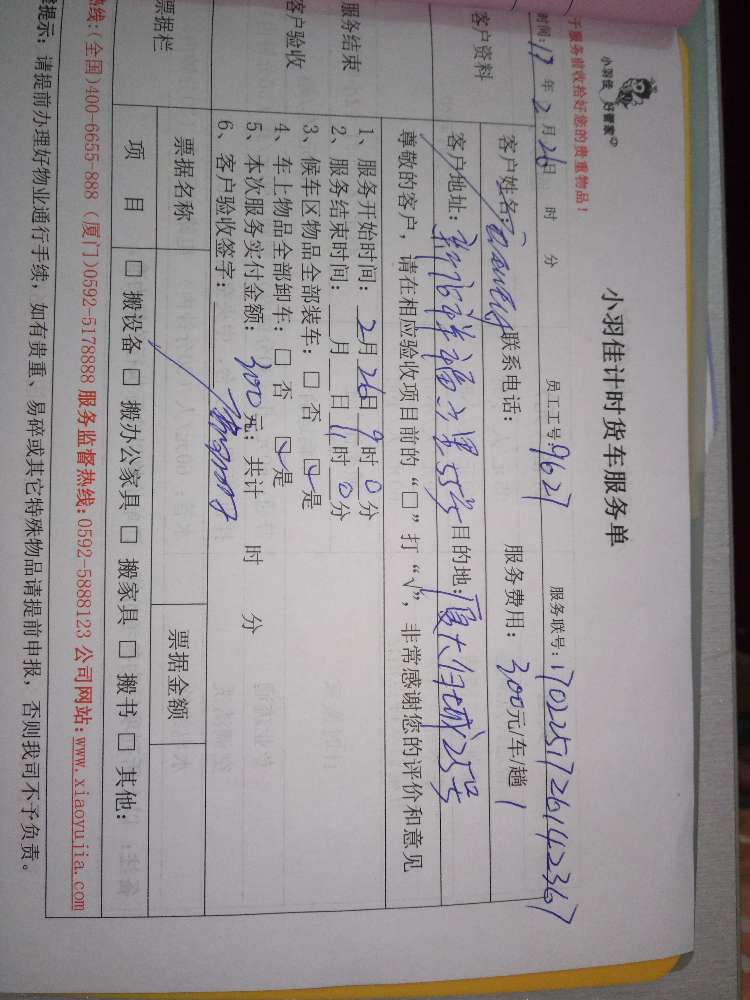 小羽佳 好管家
于服务前收拾好您的贵重物品！
小羽佳计时货车服务单
时间：17 年 2 月 26 日 时 分 员工工号：9627 服务联号：
客户资料
客户姓名： 联系电话： 服务费用：300元/车/趟 1
客户地址： 55号 目的地：厦大 25号
尊敬的客户，请在相应验收项目前的“□”打“√”，非常感谢您的评价和意见
服务结束
客户验收
1、服务开始时间：2月26日9时0分
2、服务结束时间：__月__日11时0分
3、候车区物品全部装车：□ 否 ☑是
4、车上物品全部卸车：□ 否 ☑是
5、本次服务实付金额：300元；共计 时 分
6、客户验收签字：
票据栏
票据名称 票据金额
项 目 □ 搬设备 □ 搬办公家具 □ 搬家具 □ 搬书 □ 其他：
热线：（全国）400-6655-888（厦门）0592-5178888 服务监督热线：0592-5888123 公司网站：www.xiaoyujia.com
提示：请提前办理好物业通行手续，如有贵重、易碎或其它特殊物品请提前申报，否则我司不予负责。